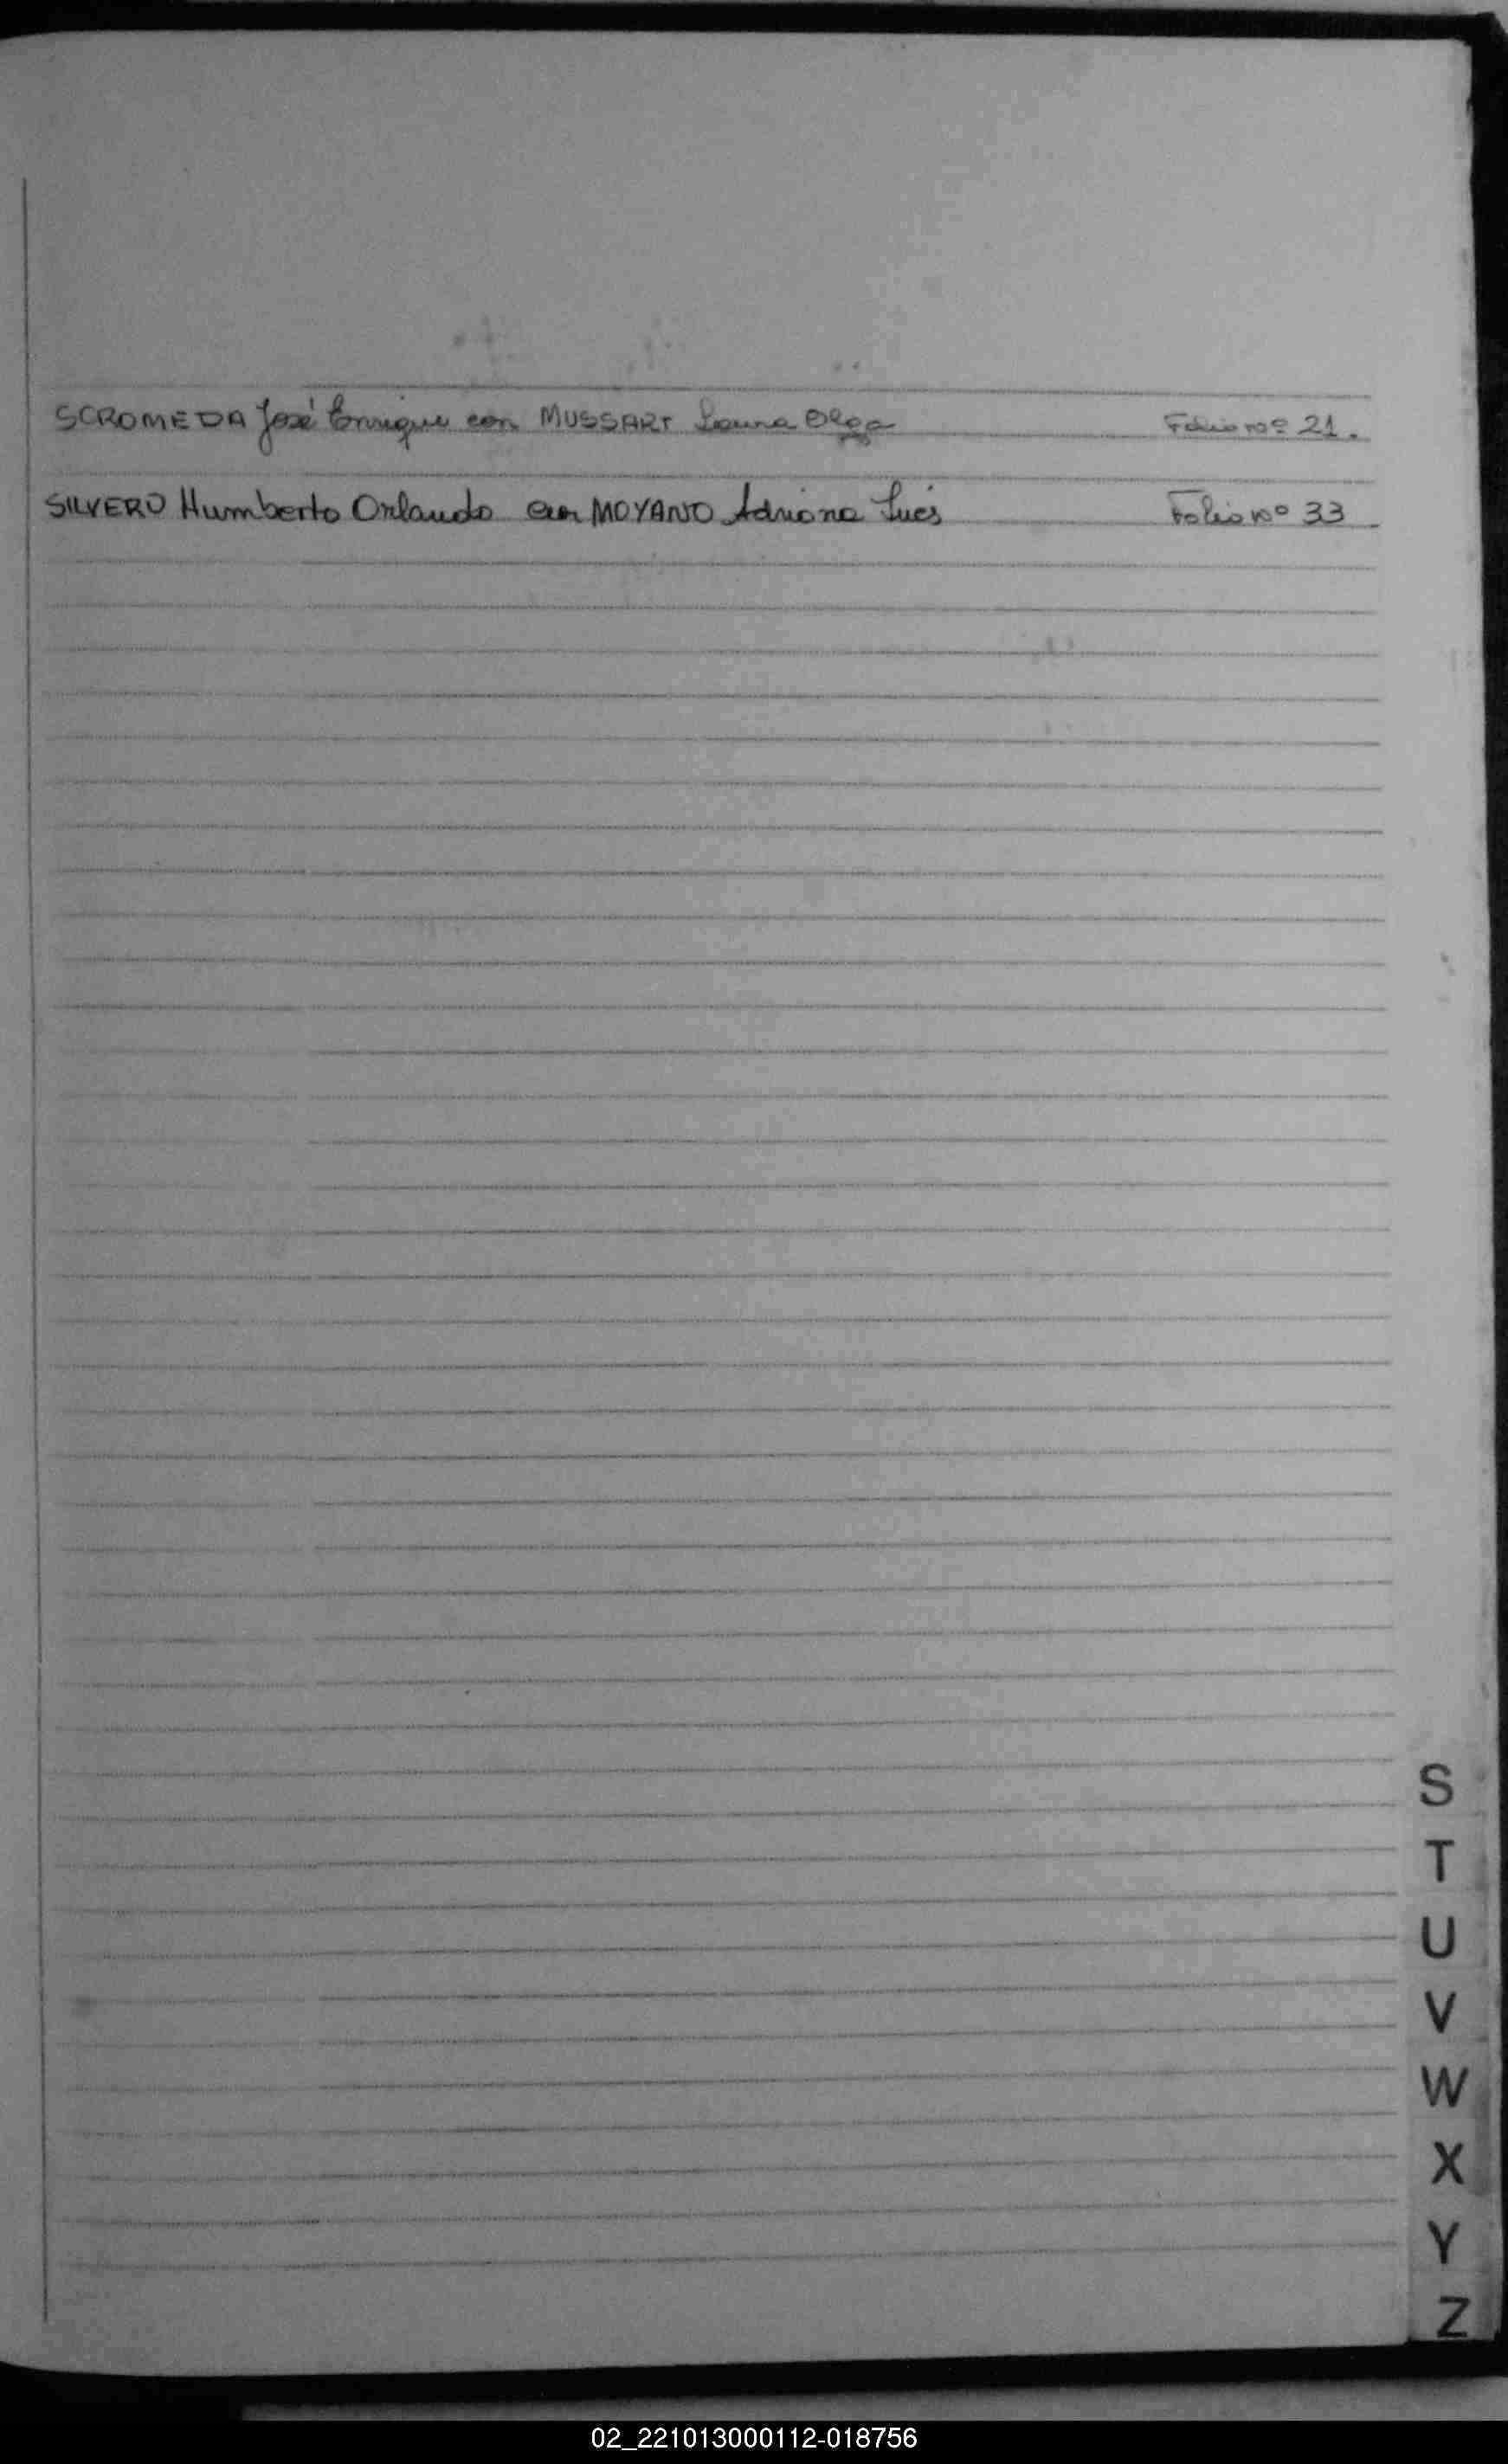 SCROMEDA José Enrique con MUSSART Laura Olga Folio nº 21.
SILVERO Humberto Orlando con MOYANO Adriana Inés Folio nº 33
S
T
U
V
W
X
Y
Z
02_221013000112-018756